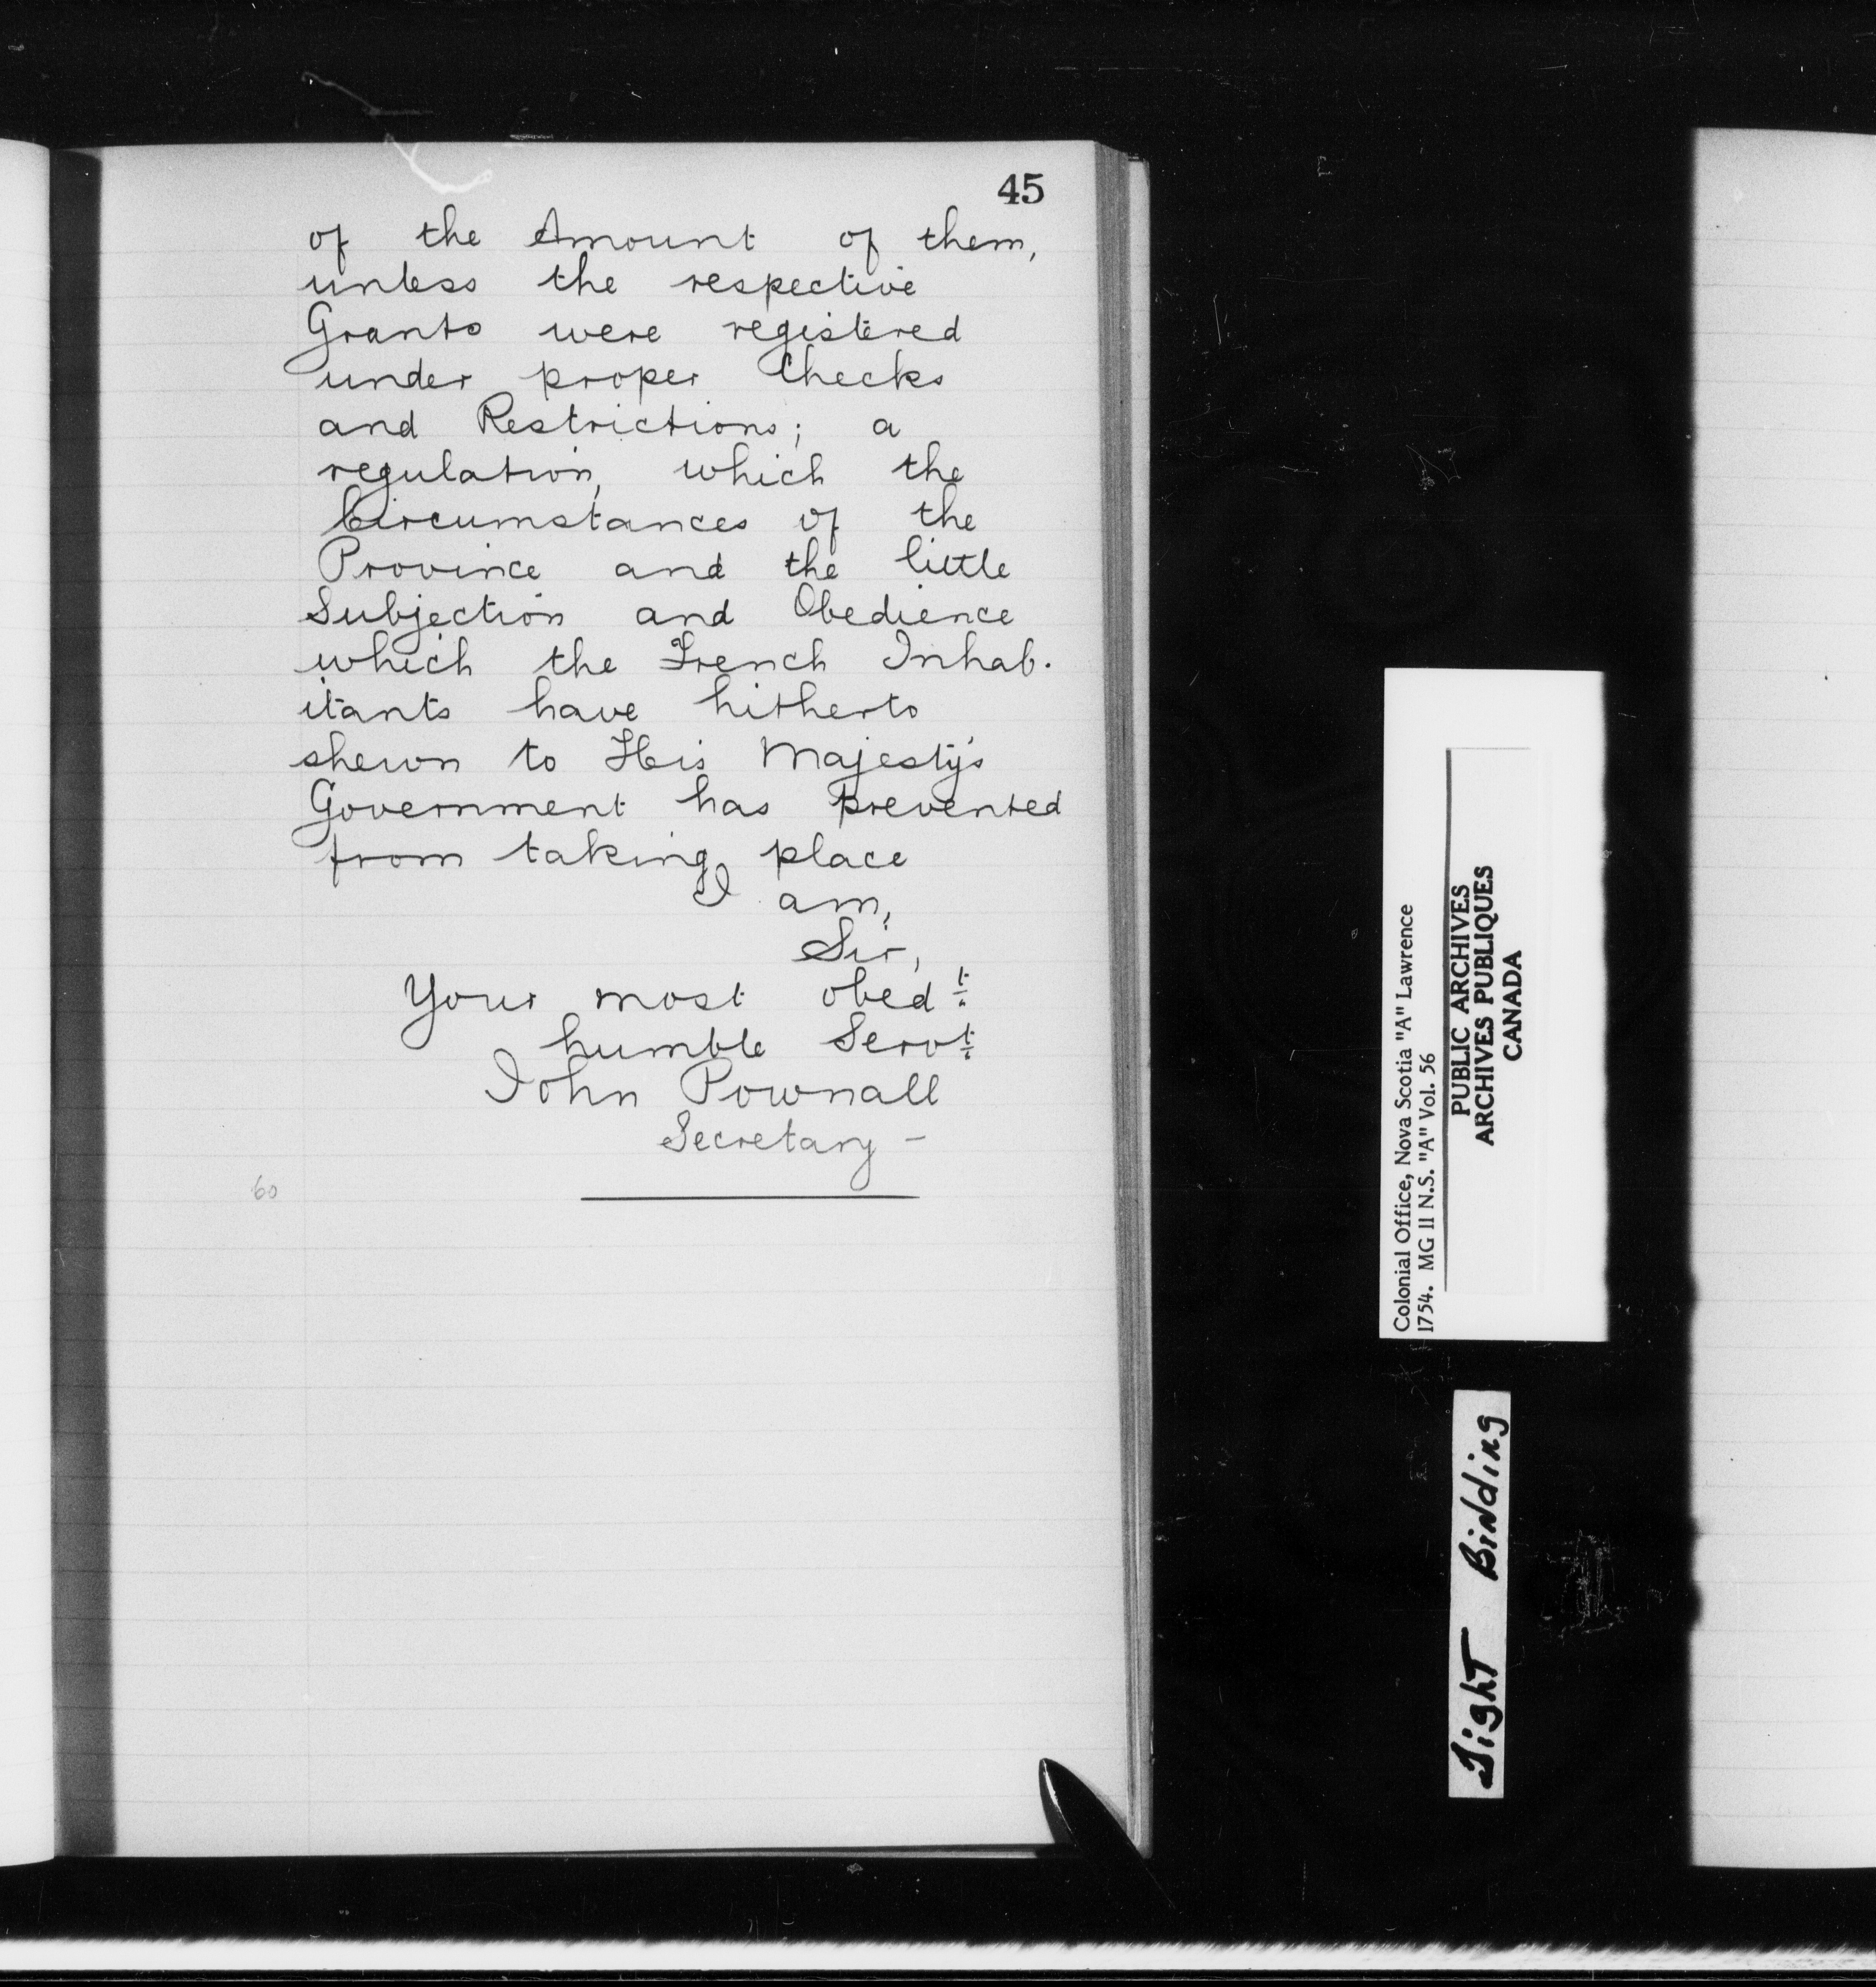 45
of the Amount of them,
unless the respective
Grants were registered
under proper Checks
and Restrictions; a
regulation, which the
Circumstances of the
Province and the little
Subjection and Obedience
which the French Inhab-
itants have hitherto
shewn to His Majesty's
Government has prevented
from taking place
I am,
Sir,
Your most obedt.
humble Servt.
John Pownall
Secretary -
60
Colonial Office, Nova Scotia "A" Lawrence
1754. MG 11 N.S. "A" Vol. 56
PUBLIC ARCHIVES
ARCHIVES PUBLIQUES
CANADA
Tight Binding